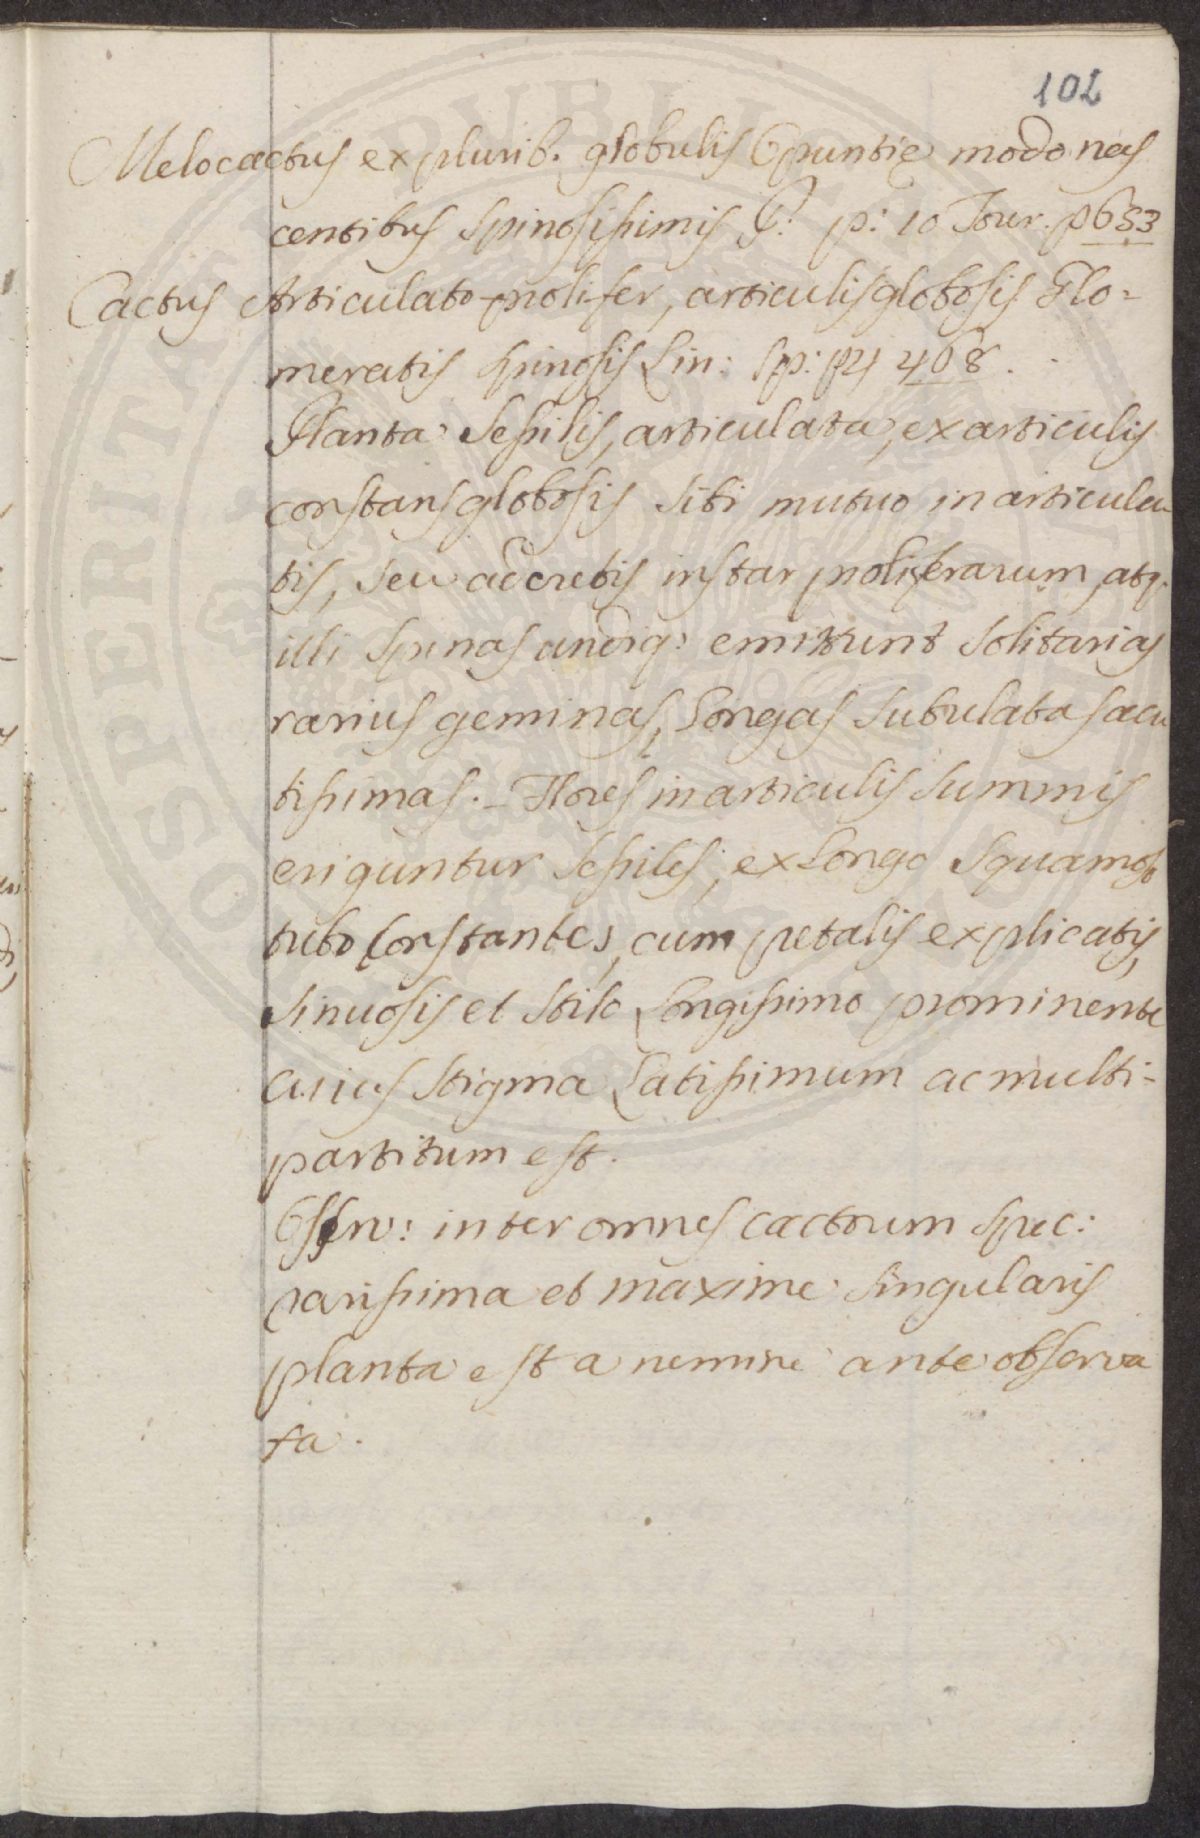 102
Melocactus ex plurib. globulis Opuntię modo nas
centibus spinosissimis P: p: 10 Tour. p 653
Cactus Articulato-prolifer, articulis globosis Glo-
meratis spinosis Lin: sp: pl 408.
Planta sessilis, articulata, ex articulis
constans globosis sibi mutuo inarticula
tis, seu adcretis instar proliferarum, atq.
illi spinas undiq: emittunt solitarias
rarius geminas, longas subulatas acu
tissimas. _ Flores in articulis summis
eriguntur sessiles, ex Longo squamoso
tubo Constantes, cum petalis explicatis,
sinuosis et stilo Longissimo prominente
cuius stigma Latissimum ac multi-
partitum est.
Observ: inter omnes cactorum spec:
rarissima et maxime singularis
planta est a nemine ante observa
ta.